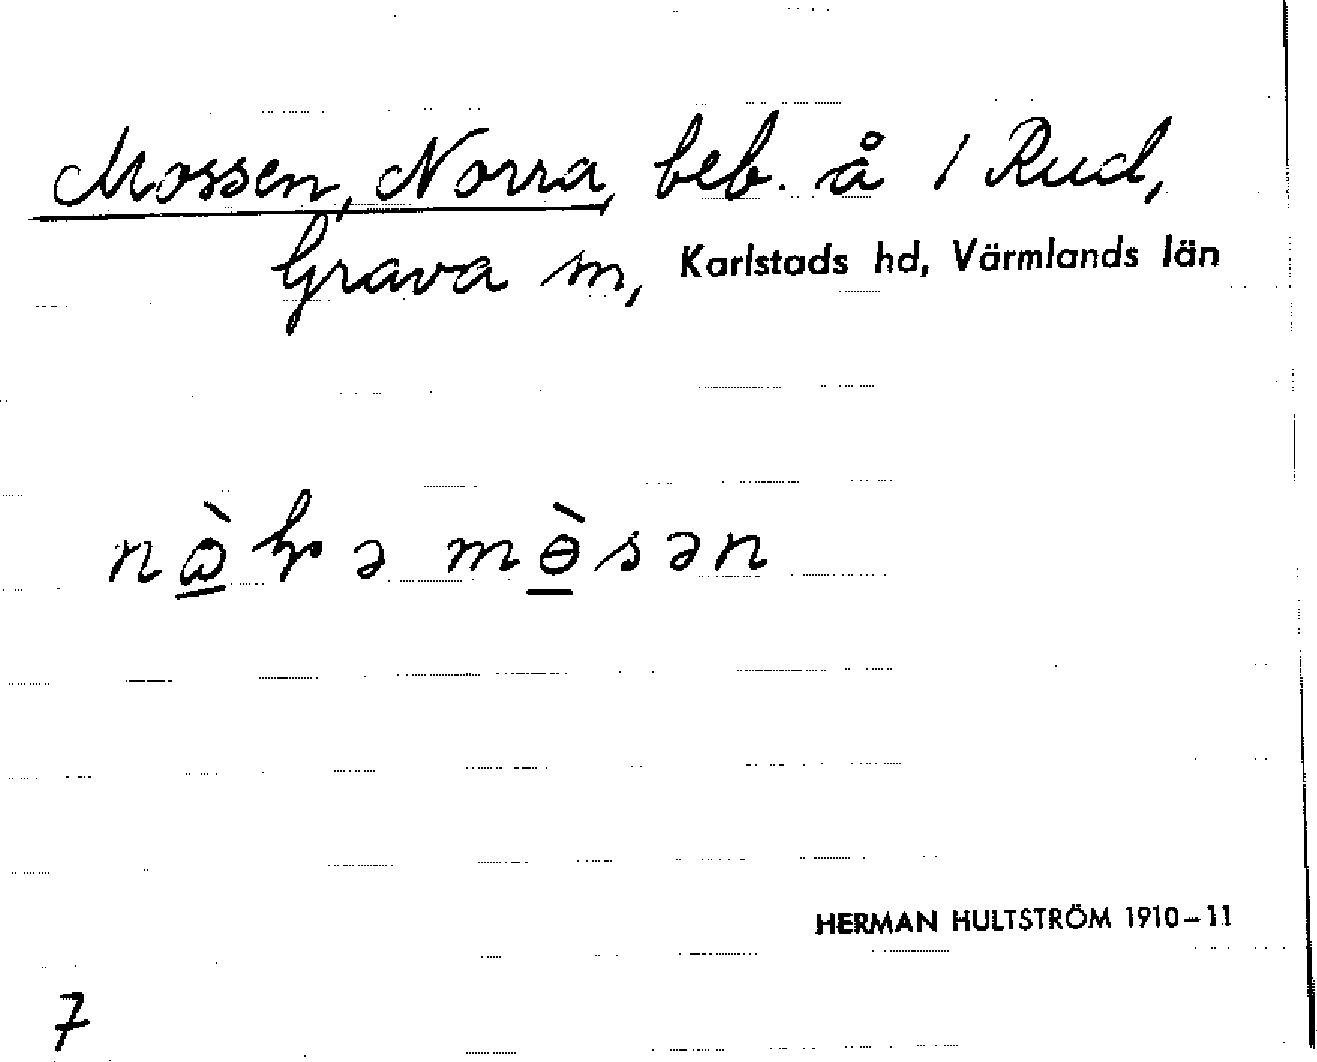 Mossen, Norra, beb. å 1 Rud,
Grava sn, Karlstads hd, Värmlands län
HERMAN HULTSTRÖM 1910–11
7